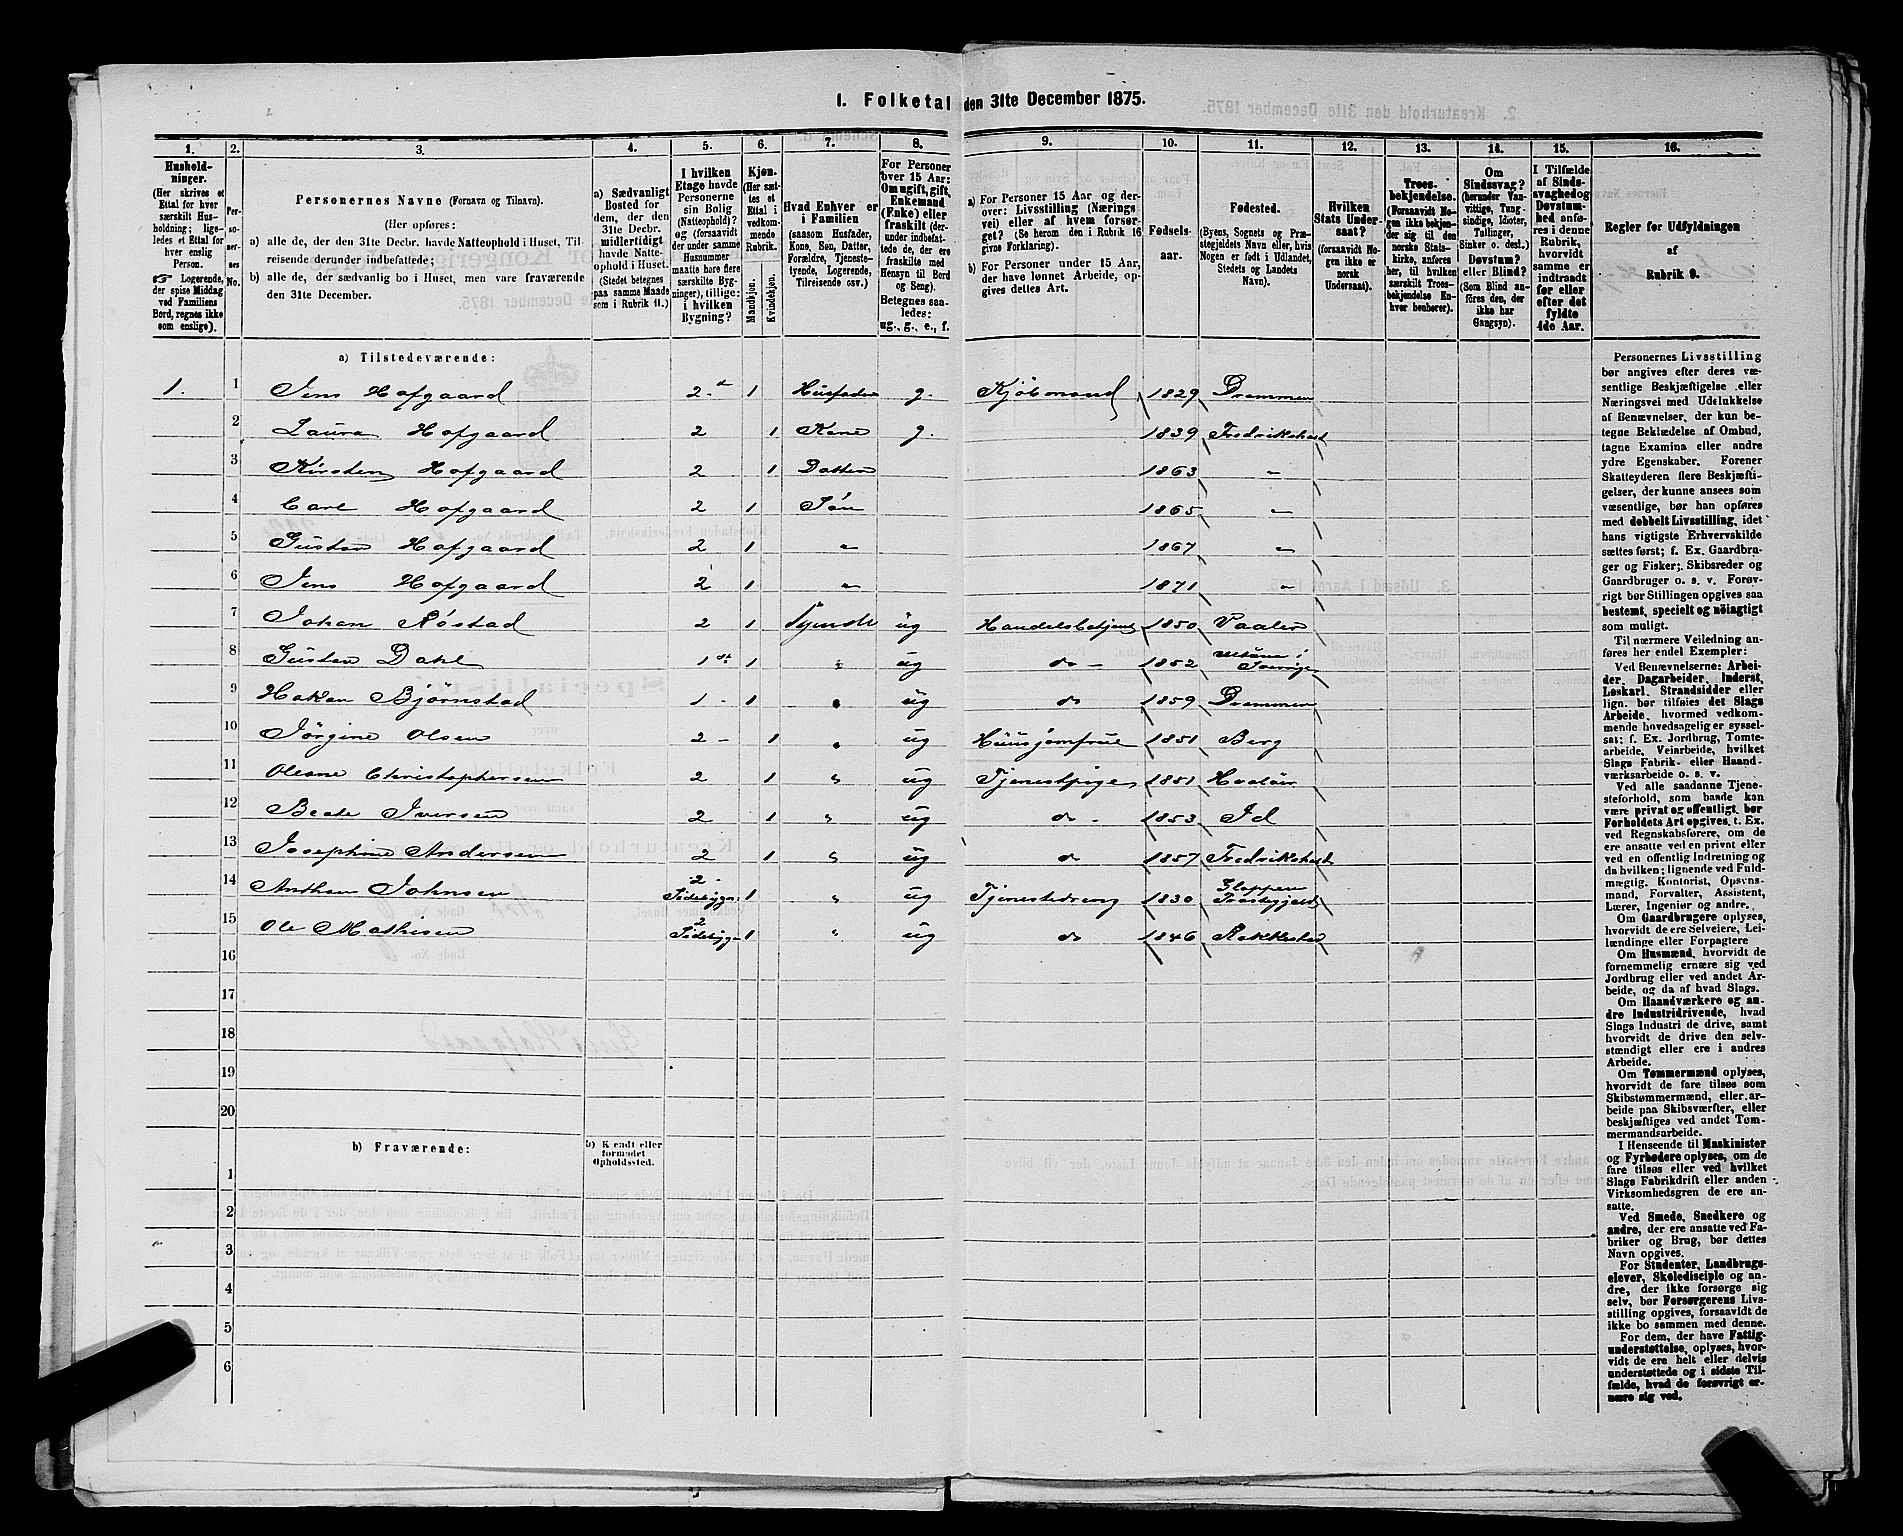 1. Folketal den 31te December 1875.
1. 2. 3. 4. 5. 6. 7. 8. 9. 10. 11. 12. 13. 14. 15. 16.
Husholdninger.
(Her skrives et
Ettal for hver
særskilt Husholdning;
ligeledes et Ettal for
hver enslig
Person.
Logerende,
der spise Middag
ved Familiens
Bord, regnes ikke
som enslige).
Personernes No.
Personernes Navne (Fornavn og Tilnavn).
(Her opføres:
a) alle de, der den 31te Decbr. havde Natteophold i Huset, Tilreisende derunder indbefattede;
b) alle de, der sædvanlig bo i Huset, men vare fraværende
den 31te December.
a) Sædvanligt
Bosted for
dem, der den
31te Decbr.
midlertidigt
havde Natteophold i Huset.
(Stedet betegnes
paa samme Maade
som i Rubrik 11.)
I hvilken
Etage havde
Personerne
sin Bolig
(Natteophold)?
og (forsaavidt
der under samme
Husnummer
maatte høre flere
særskilte Bygninger), tillige:
i hvilken
Bygning?
Kjøn.
(Her sættes et
Ettal i
vedkommende
Rubrik.
Mandkjøn.
Kvindekjøn.
Hvad Enhver er
i Familien
(saasom Husfader,
Kone, Søn, Datter,
Forældre, Tjenestetyende, Logerende,
Tilreisende osv.)
For Personer
over 15 Aar:
Om ugift, gift,
Enkemand
(Enke) eller
fraskilt (derunder indbefattede de, der ere
fraskilte med
Hensyn til Bord
og Seng).
Betegnes saaledes:
ug., g., e., f.
a) For Personer 15 Aar og derover: Livsstilling (Næringsvei) eller af hvem forsørget? (Se herom den i Rubrik 16
givne Forklaring).
b) For Personer under 15 Aar,
der have lønnet Arbeide, opgives dettes Art.
Fødselsaar.
Fødested.
(Byens, Sognets og Præstegjeldets Navn eller, hvis
Nogen er født i Udlandet,
Stedets og Landets
Navn).
Hvilken
Stats Undersaat?
(forsaavidt Nogen ikke er
norsk
Undersaat).
Troesbekjendelse.
(Forsaavidt Nogen ikke bekjender sig til den
norske Statskirke, anføres
her, til hvilken
særskilt Troesbekjendelse Enhver henhører).
Om
Sindssvag?
(herunder Vanvittige, Tungsindige, Idioter,
Tullinger,
Sinker o. desl.)
Døvstum?
eller Blind?
(Som Blind anføres den, der
ikke har
Gangsyn).
I Tilfælde
af Sindssvaghed og
Døvstumhed anføres i denne
Rubrik,
hvorvidt
samme er
indtraadt
før eller
efter det
fyldte
4de Aar.
Regler for Udfyldningen
af
Rubrik 9.
a) Tilstedeværende:
1. 1 Jens Hofgaard 2. 1 Husfader g. Kjøbmand 1829 Drammen
2 Laura Hofgaard 2 1 Kone g. 1839 Fredrikshald
3 Kirsten Hofgaard 2 1 Datter 1863 "
4 Carl Hofgaard 2 1 Søn 1865 "
5 Gustav Hofgaard 2 1 " 1867 "
6 Jens Hofgaard 2 1 " 1871 "
7 Johan Røstad 2 1 Tyende ug Handelsbetjent 1850 Vaaler
8 Gustav Dahl 1st 1 " ug do - 1852 i Sverige
9 Hakon Bjørnstad 1 - 1 " ug do 1859 Drammen
10 Jørgine Olsen 2 - 1 " ug Huusjomfrue 1851 Berg
11 Oleane Christophersen 2 1 " ug Tjenestpige 1851 Hvaløer
12 Beate Iversen 2 1 " ug do - 1853 Id
13 Josephine Andersen 2 1 " ug do 1857 Fredrikshald
14 Anthon Johnsen 2 - Sidebygn. 1 " ug Tjenestedreng 1830 Præstegjeld
15 Ole Mathisen 2 Sidebygn 1 " ug do 1846 Rakkestad
16
17
18
19
20
b) Fraværende:
b) Kjendt eller
formodet
Opholdssted.
1
2
3
4
5
6
Personernes Livsstilling
bør angives efter deres væsentlige Beskjæftigelse eller
Næringsvei med Udelukkelse
af Benævnelser, der kun betegne Beklædelse af Ombud,
tagne Examina eller andre
ydre Egenskaber. Forener
Skatteyderen flere Beskjæftigelser, der kunne ansees som
væsentlige, bør han opføres
med dobbelt Livsstilling, idet
hans vigtigste Erhvervskilde
sættes først; f. Ex. Gaardbruger og Fisker; Skibsreder og
Gaardbruger o. s. v. Forøvrigt bør Stillingen opgives saa
bestemt, specielt og nöiagtigt
som muligt.
Til nærmere Veiledning anføres her endel Exempler:
Ved Benævnelserne: Arbeider, Dagarbeider, Inderst,
Løskarl, Strandsidder eller
lign. bør tilføies det Slags
Arbeide, hvormed vedkommende hovedsagelig er sysselsat; f. Ex. Jordbrug, Tomtearbeide, Veiarbeide, hvilket
Slags Fabrik- eller Haandværksarbeide o. s. v.
Ved alle saadanne Tjenesteforhold, som baade kan
være privat og offentligt, bør
Forholdets Art opgives, t. Ex.
ved Regnskabsførere, om de
ere ansatte ved en privat eller
ved en offentlig Indretning og
da hvilken; lignende ved Fuldmægtig, Kontorist, Opsynsmand, Forvalter, Assistent,
Lærer, Ingeniør og andre.
Om Gaardbrugere oplyses,
hvorvidt de ere Selveiere, Leilændinge eller Forpagtere
Om Husmænd, hvorvidt de
fornemmelig ernære sig ved
Jordbrug eller ved andet Arbeide, og da af hvad Slags.
Om Haandværkere og andre Industridrivende, hvad
Slags Industri de drive, samt
hvorvidt de drive den selvstændigt eller ere i andres
Arbeide.
Om Tømmermænd oplyses,
hvorvidt de fare tilsøs som
Skibstømmermænd, eller arbeide paa Skibsværfter, eller
beskjæftiges ved andet Tømmermandsarbeide.
I Henseende til Maskinister
og Fyrbødere oplyses, om de
fare tilsøs eller ved hvilket
Slags Fabrikdrift eller anden
Virksomhedsgren de ere ansatte.
Ved Smede, Snedkere og
andre, der ere ansatte ved Fabriker og Brug, bør dettes
Navn opgives.
For Studenter, Landbrugselever, Skoledisciple og andre, der ikke forsørge sig
selv, bør Forsørgerens Livsstilling opgives, forsaavidt de
ikke bo sammen med denne.
For dem, der have Fattigunderstøttelse, oplyses, hvorvidt de ere helt eller delvis
understøttede og i sidste Tilfælde, hvad de forøvrigt ernære sig ved.